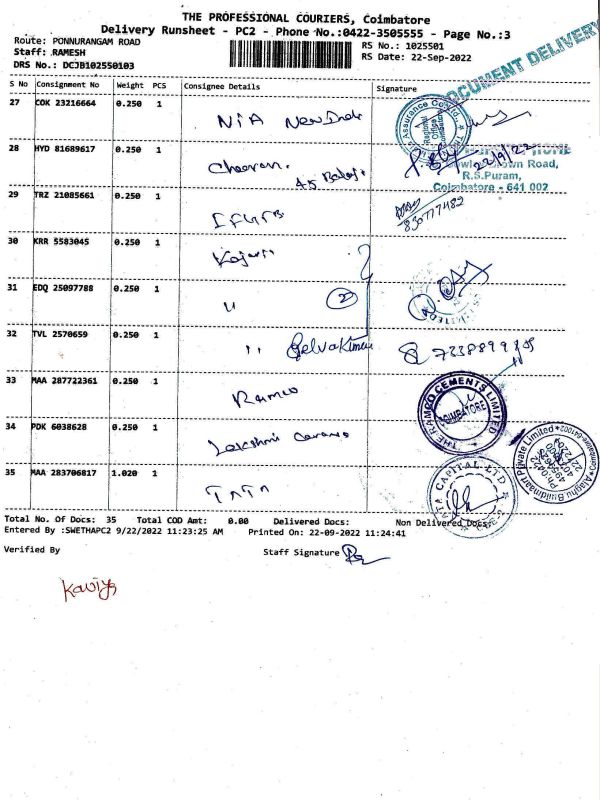 THE PROFESSIONAL COURIERS, Coimbatore
Delivery Runsheet - PC2 - Phone No.:0422-3505555 - Page No.:3
Route: PONNURANGAM ROAD
RS No.: 1025501
Staff: RAMESH
RS Date: 22-Sep-2022
DRS No.: DCJB102550103
DOCUMENT DELIVERY
S No Consignment No Weight PCS Consignee Details Signature
27 COK 23216664 0.250 1
NIA New India
28 HYD 81689617 0.250 1
22/9/22
Cheeran.
Road,
R.S.Puram,
Coimbatore - 641 002
29 TRZ 21085661 0.250 1
30 KRR 5583045 0.250 1
31 EDQ 25097788 0.250 1
" 2
32 TVL 2570659 0.250 1
" Selvakumar
33 MAA 287722361 0.250 1
Ramco
THE RAMCO CEMENTS LIMITED
COIMBATORE
34 PDK 6038628 0.250 1
Lakshmi
Alaghu Buildmart Private Limited
35 MAA 283706817 1.020 1
TATA
TATA CAPITAL LTD
Total No. Of Docs: 35 Total COD Amt: 0.00 Delivered Docs: Non Delivered Docs:
Entered By :SWETHAPC2 9/22/2022 11:23:25 AM Printed On: 22-09-2022 11:24:41
Verified By Staff Signature
Kaviya